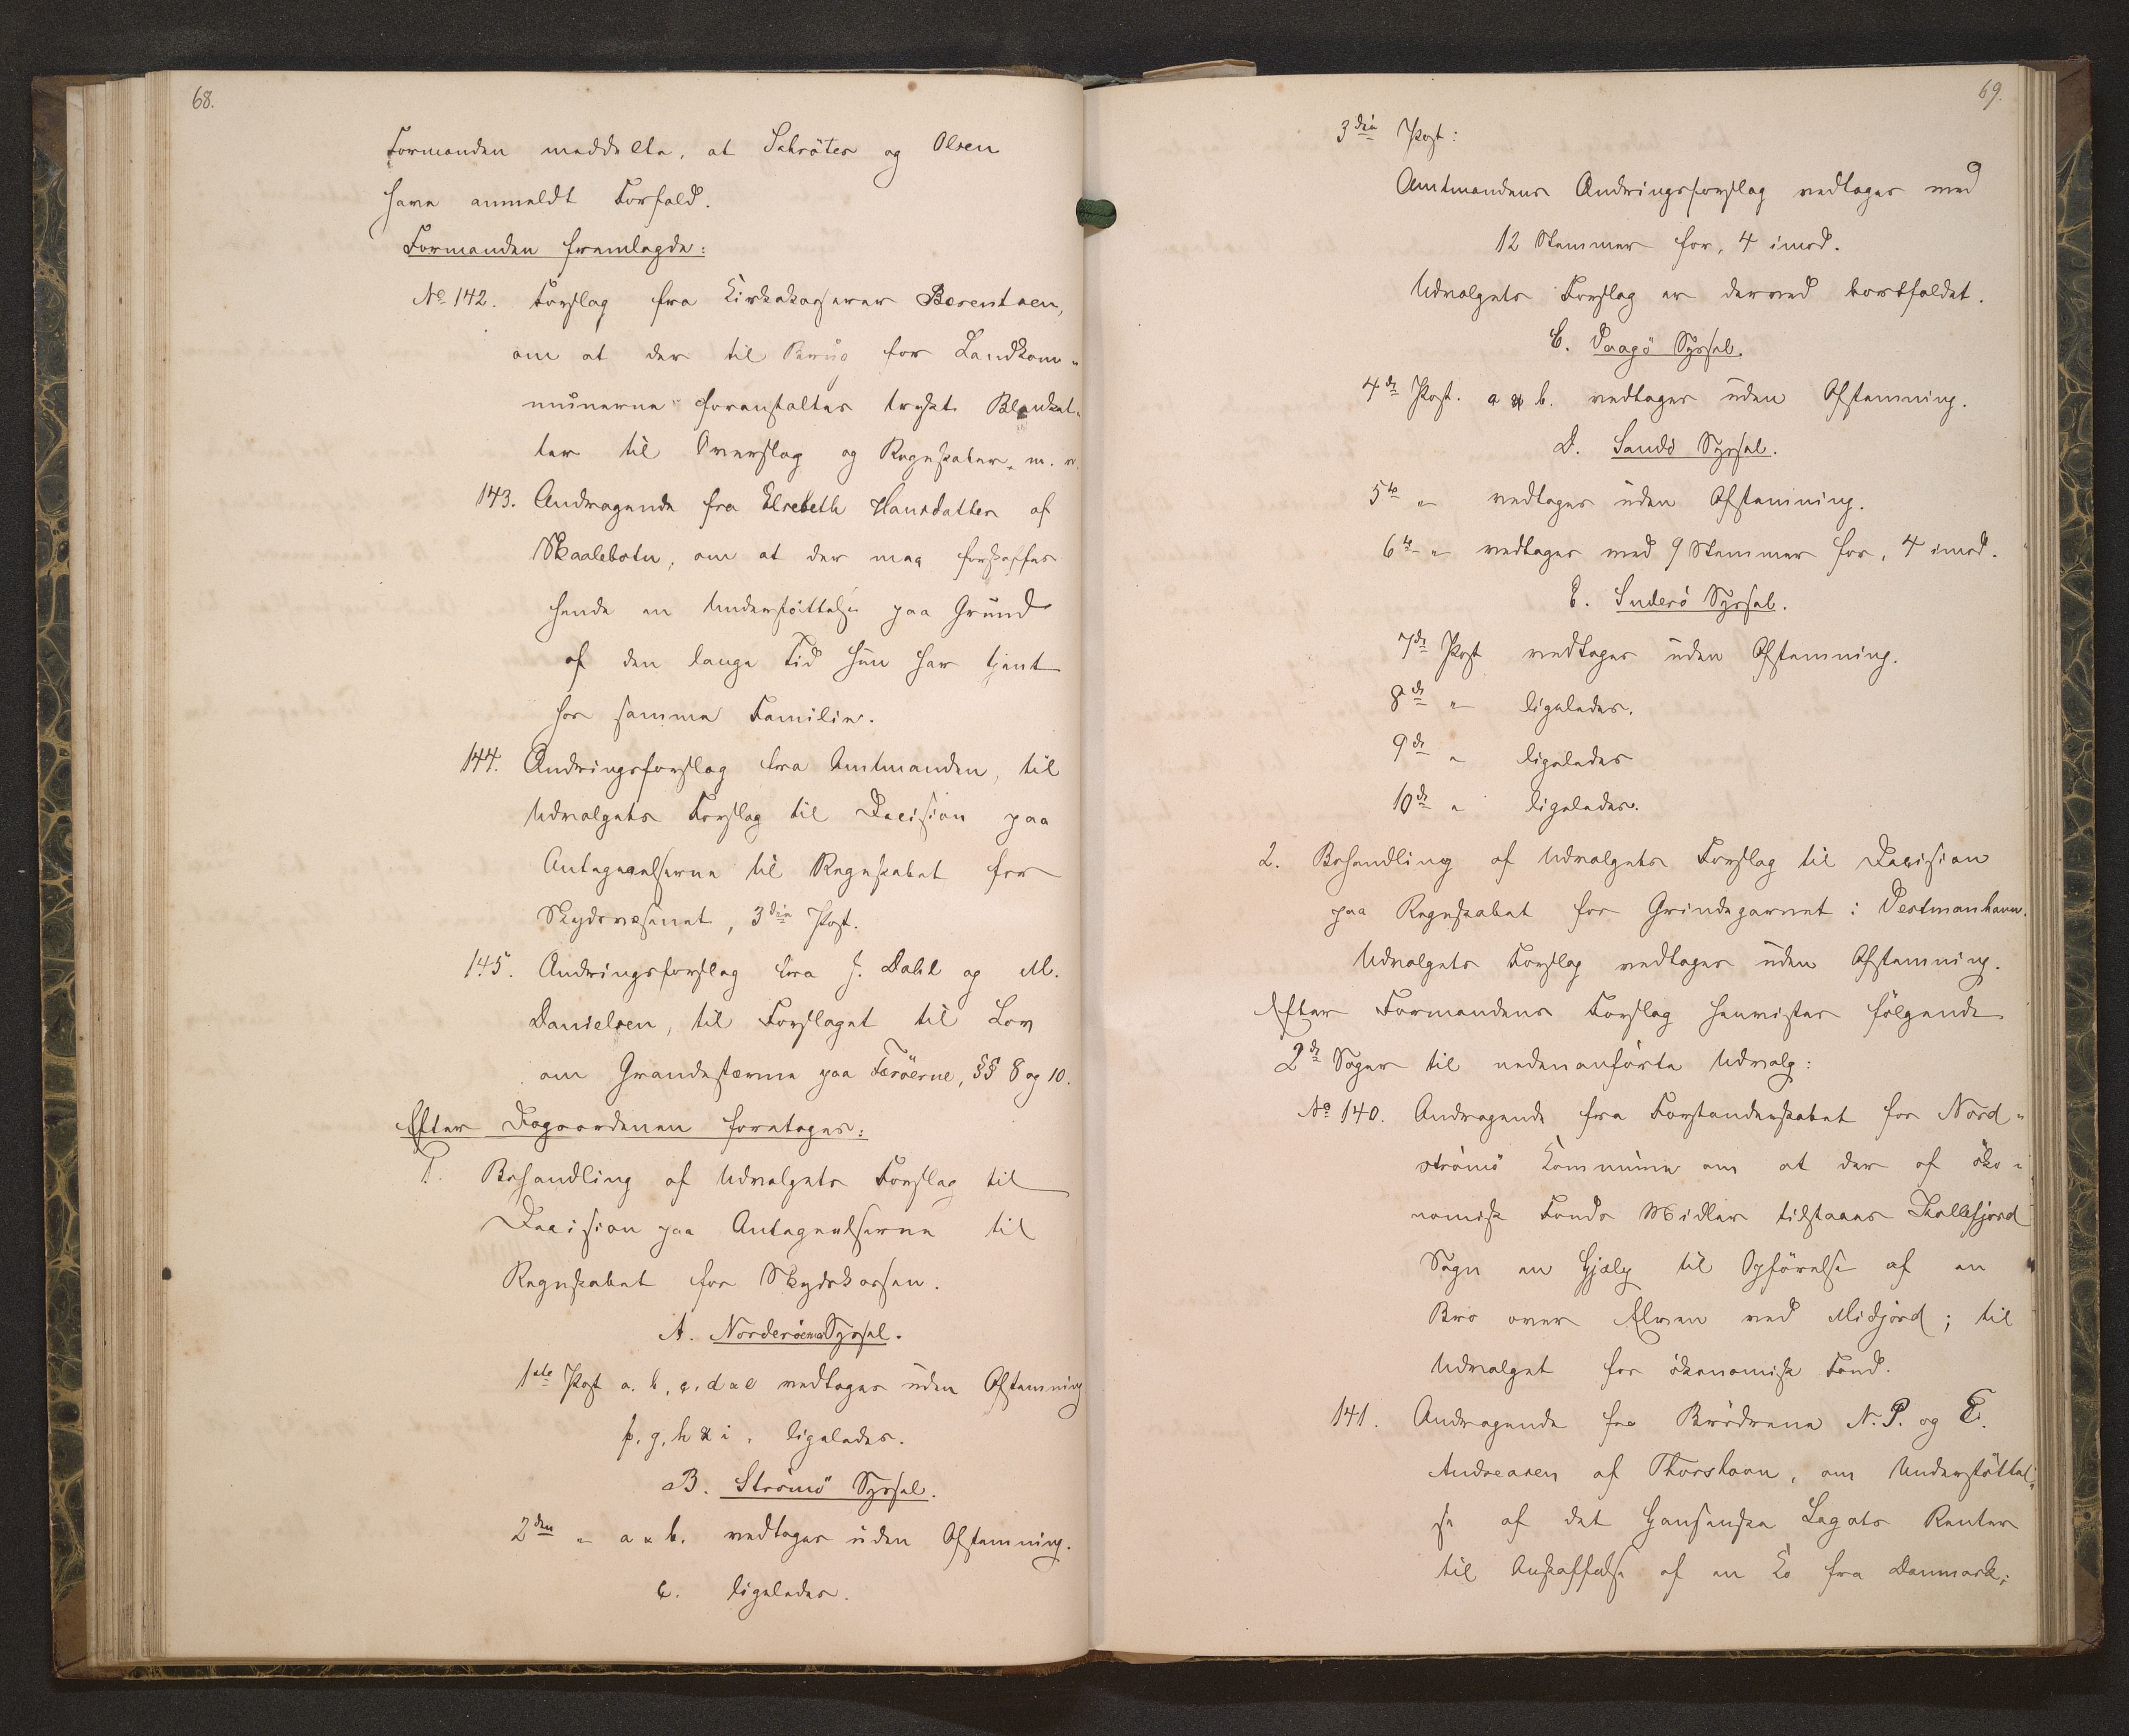 68.
Formanden meddelte, at Schröter og Olsen
have anmeldt Forfald.
Formanden fremlagde:
No 142. Forslag fra Kirkekasserer Berentsen,
om at der til Brug for Landkom-
munerne foranstaltes trykte Blanket-
ter til Overslag og Regnskaber m. v.
143. Andragende fra Elsebeth Hansdatter af
Skaalebotn, om at der maa forskaffes
hende en Understöttelse paa Grund
af den lange Tid hun har tjent
hos samme Familie.
144. Ændringsforslag fra Amtmanden, til
Udvalgets Forslag til Decision paa
Antegnelserne til Regnskabet for
Skydsvæsenet, 3die Post.
145. Ændringsforslag fra J. Dahl og M.
Danielsen, til Forslaget til Lov
om Grandestævne paa Færöerne, §§ 8 og 10.
Efter Dagsordenen foretages:
1. Behandling af Udvalgets Forslag til
Decision paa Antegnelserne til
Regnskabet for Skydskassen.
A. Norderöernes Syssel.
1ste Post a, b, c, d & e vedtages uden Afstemning
f, g, h & i, ligeledes.
B. Strömö Syssel.
2den " a & b. vedtages uden Afstemning.
c. ligeledes.
69.
3die Post:
Amtmandens Ændringsforslag vedtages med
12 Stemmer for, 4 imod.
Udvalgets Forslag er derved bortfaldet.
C. Vaagö Syssel.
4de Post. a & b. vedtages uden Afstemning.
D. Sandö Syssel.
5te " vedtages uden Afstemning.
6te " vedtages med 9 Stemmer for, 4 imod.
E. Suderö Syssel.
7de Post vedtages uden Afstemning.
8de " ligeledes.
9de " ligeledes
10de " ligeledes.
2. Behandling af Udvalgets Forslag til Decision
paa Regnskabet for Grindegarnet i Vestmanhavn.
Udvalgets Forslag vedtages uden Afstemning.
Efter Formandens Forslag henvistes fölgende
2de Sager til nedenanförte Udvalg:
No 140. Andragende fra Forstanderskabet for Nord-
strömö Kommune om at der af öko-
nomisk Fonds Midler tilstaaes Kollefjord
Sogn en Hjælp til Opförelse af en
Bro over Elven ved Midjord; til
Udvalget for ökonomisk Fond.
141. Andragende fra Brödrene N. P. og E.
Andreasen af Thorshavn, om Understöttel-
se af det Hansenske Legats Renter
til Anskaffelse af en Ko fra Danmark;